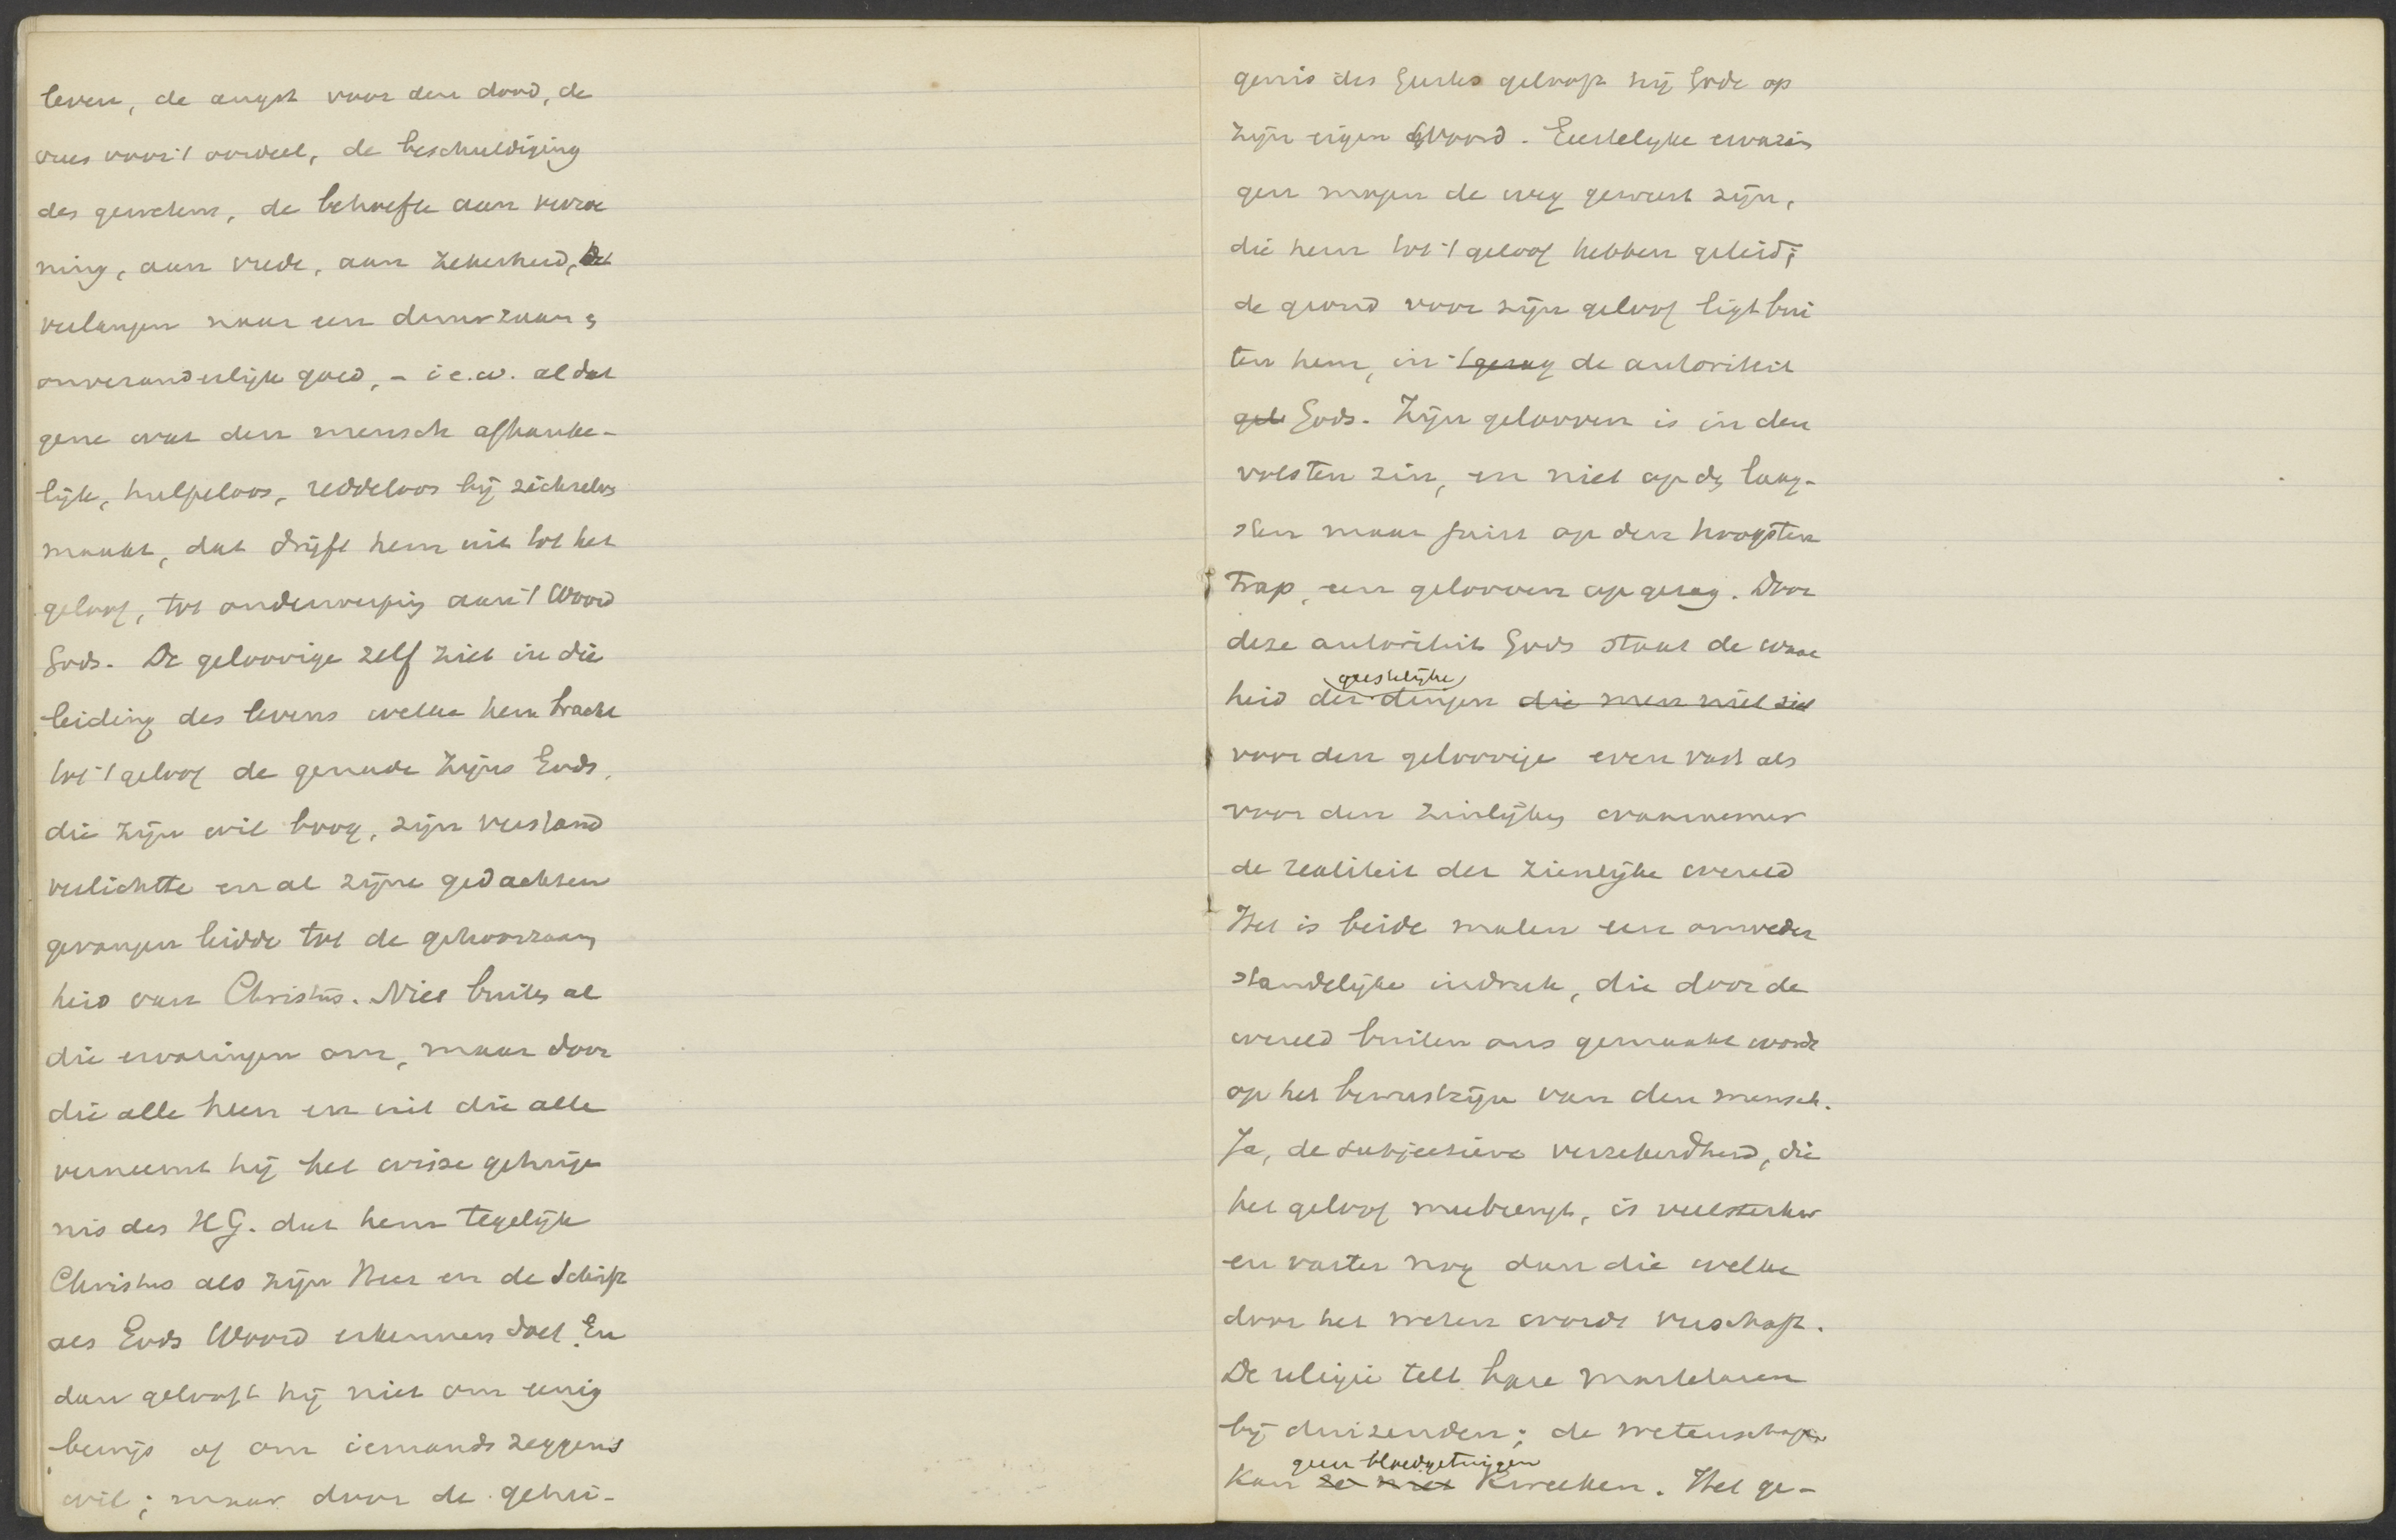 leven, de angst voor den dood, de
vrees voor 't oordeel, de beschuldiging
des gewetens, de behoefte aan verzoe
ning, aan vrede, aan zekerheid, het
verlangen naar een duurzaam,
onveranderlijk goed, - i.e.w. al dat
gene wat den mensch afhanke-
lijk, hulpeloos, reddeloos bij zichzelve
maakt, dat drijft hem uit tot het
geloof, tot onderwerping aan 't Woord
Gods. De geloovige zelf ziet in die
leiding des levens welke hem bracht
tot 't geloof de genade Zijns Gods,
die zijn wil boog, zijn verstand
verlichtte en al zijne gedachten
gevangen leidde tot de gehoorzaam
heid van Christus. Niet buiten al
die ervaringen om, maar door
die alle heen en uit die alle
verneemt hij het wisse getuige
nis des H.G. dat hem tegelijk
Christus als zijn Heer en de Schrift
als Gods Woord erkennen doet. En
dan gelooft hij niet om eenig
bewijs of om iemands zeggens
wil; maar door de getui-
genis des Geestes gelooft hij Gode op
Zijn eigen Woord. Geestelijke ervarin
gen mogen de weg geweest zijn,
die hem tot 't geloof hebben geleid;
de grond voor zijn geloof ligt bui
ten hem, in 't gezag de autoriteit
gel Gods. Zijn gelooven is in den
volsten zin, en niet op den laag-
sten maar juist op den hoogsten
trap, een gelooven op gezag. Door
deze autoriteit Gods staat de waar
geestelijke
heid der dingen die men niet ziet
voor den geloovige even vast als
voor den zinlijken waarnemer
de realiteit der zienlijke wereld
Het is beide malen een onweder
standelijke indruk, die door de
wereld buiten ons gemaakt wordt
op het bewustzijn van den mensch.
Ja, de subjectieve verzekerdheid, die
het geloof meebrengt, is veel sterker
en vaster nog dan die welke
door het weten wordt verschaft.
De religie telt hare martelaren
bij duizenden; de wetenschap
geen bloedgetuigen
kan ze niet kweeken. Het ge-